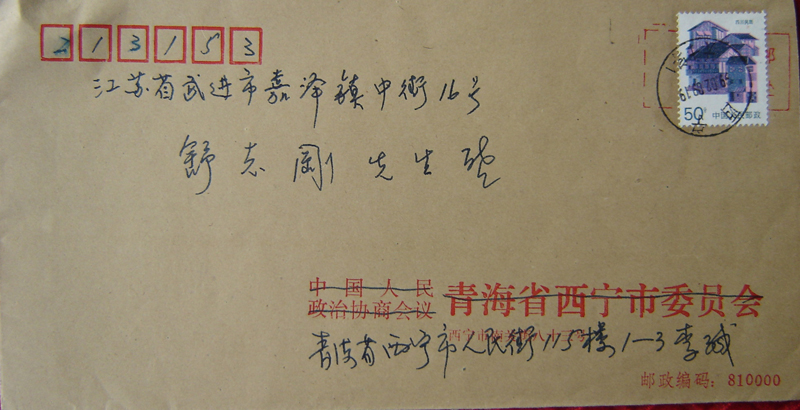 213153
江苏省武进市嘉泽镇中街16号
舒志刚先生
50
中国人民邮政
中国人民
政治协商会议
青海省西宁市委员会
青海省西宁市人民街115楼1-3李
邮政编码：810000